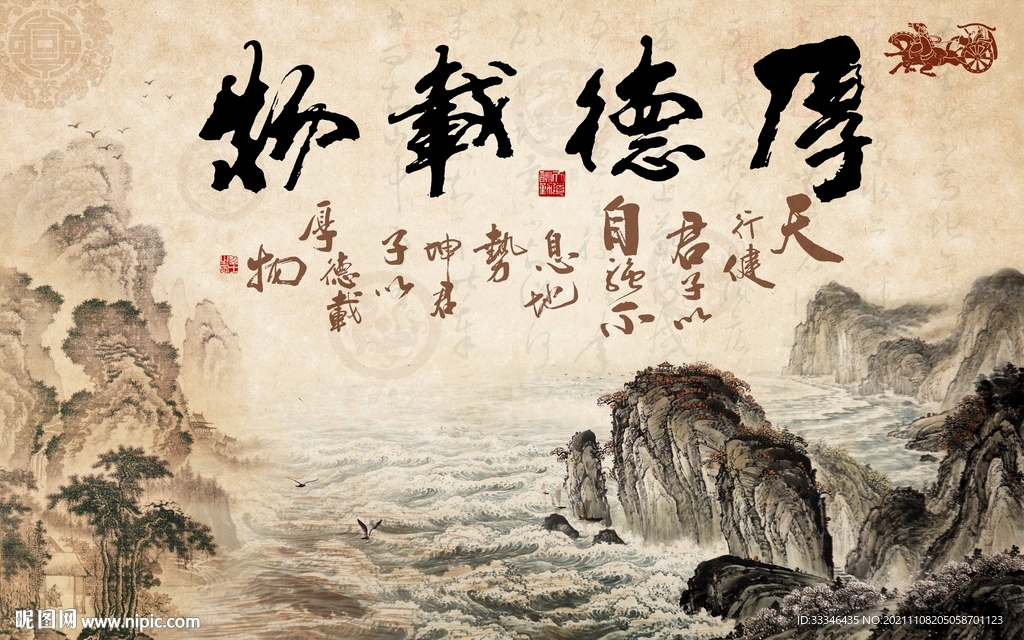 厚德載物
天
行健
君子以
自強不
息地
勢
坤君
子以
厚德載
物
昵图网 www.nipic.com
ID:33346435 NO:20211108205058701123